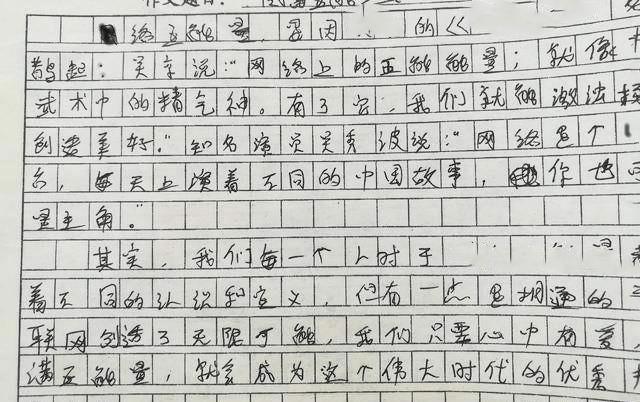 作文题目：
络正能量，是因 的
吴京说："网络上的正能能量；就像
武术中的精气神。有了它，我们就能激浊
创造美好。"知名演员关秀波说："网络是个
台，每天上演着不同的中国故事，你也
是主角。"
其实，我们每一个人对于
着不同的认识和定义，但有一点是相通的
联网创造了无限可能，我们只要心中有爱，
满正能量，就会成为这个伟大时代的优秀